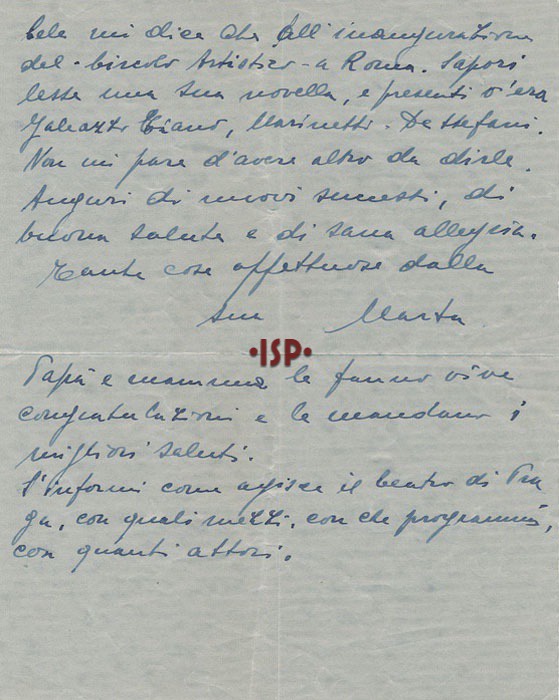 Cele mi dice che all'inaugurazione
del Circolo Artistico - a Roma. Sapori
lesse una sua novella, e presenti v'era
Galeazzo Ciano, Marinetti - De Stefani.
Non mi pare d'avere altro da dirle.
Auguri di nuovi successi, di
buona salute e di sana allegria.
Tante cose affettuose dalla
sua Marta
•ISP•
Papà e mamma le fanno vive
congratulazioni e le mandano i
migliori saluti.
S'informi come agisce il teatro di Pra
ga, con quali mezzi, con che programmi,
con quanti attori.